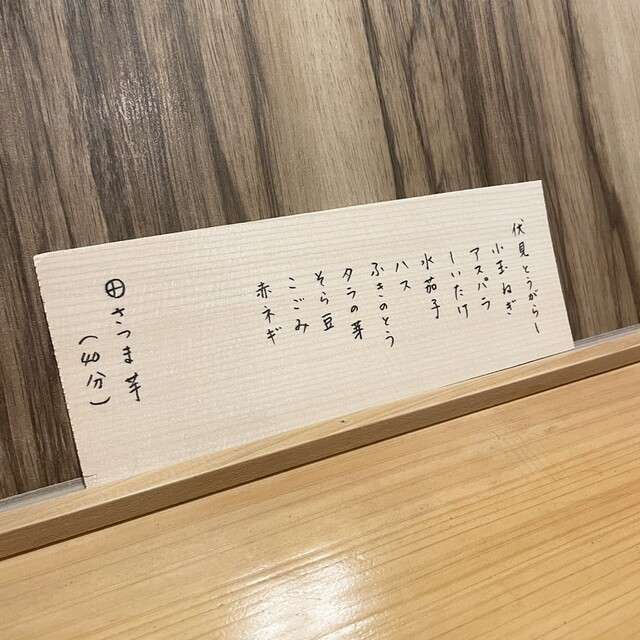 伏見とうがらし
小玉ねぎ
アスパラ
しいたけ
水茄子
ハス
ふきのとう
タラの芽
そら豆
こごみ
赤ネギ
⊕さつま芋
(40分)